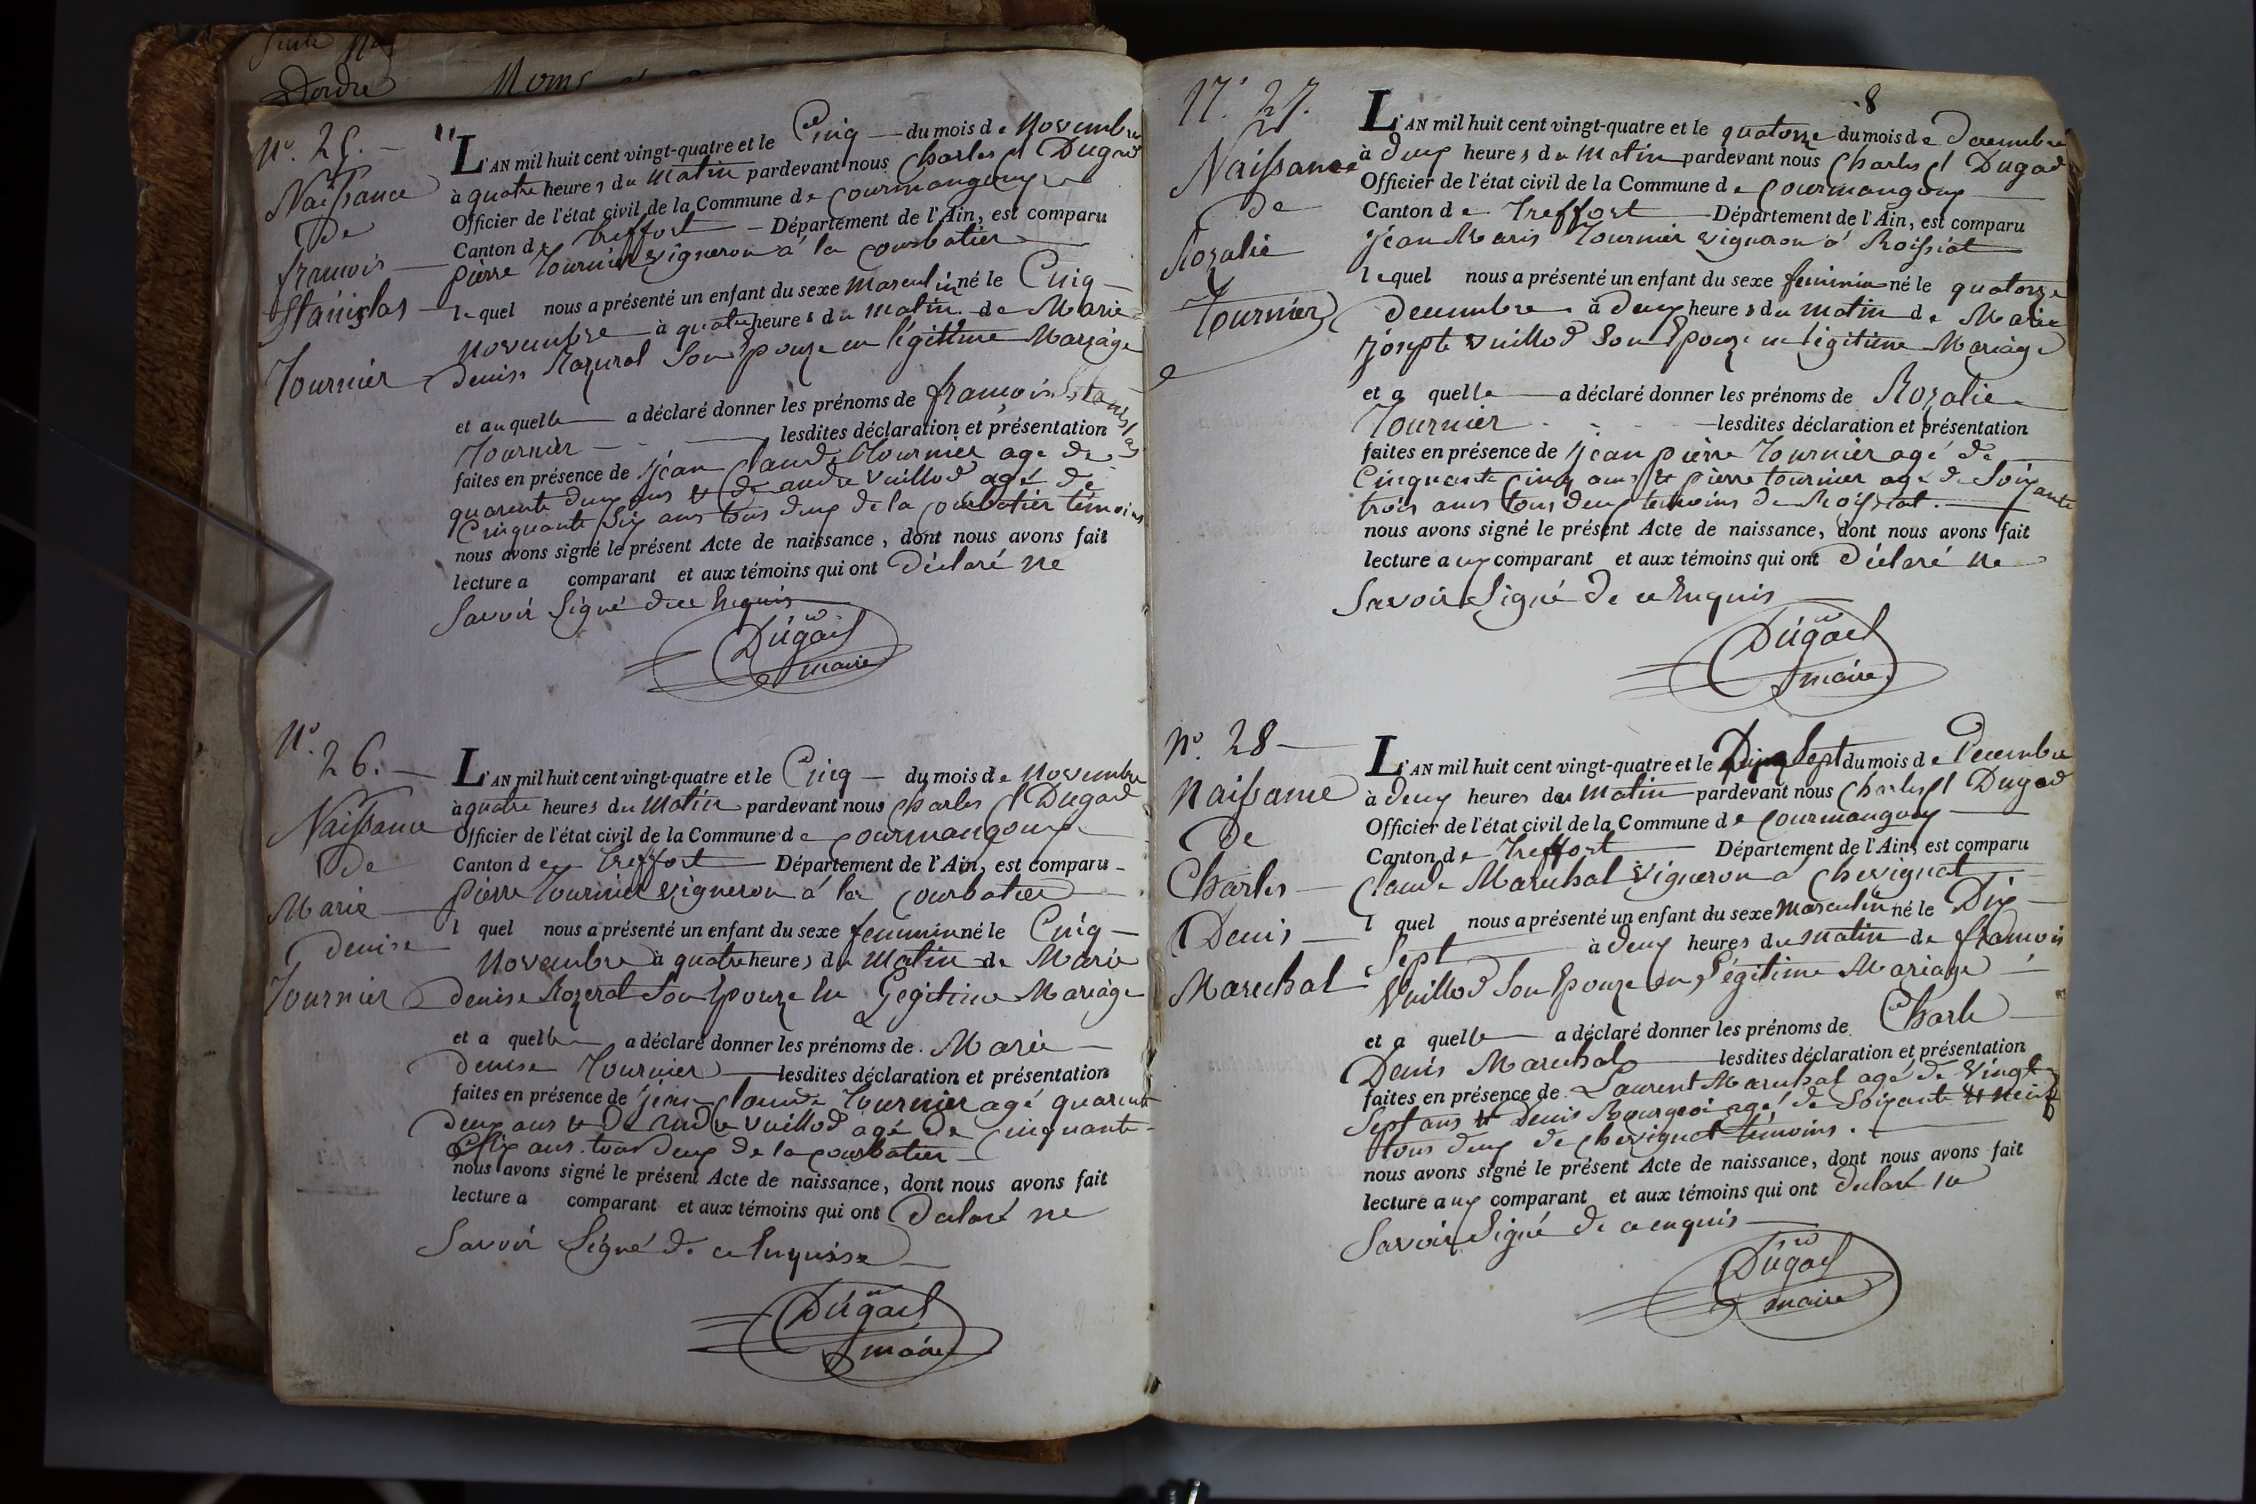 Suite
D'ordre
Noms
N.º 25.
Naissance
de
françois
Stanislas
Tournier
L'AN mil huit cent vingt-quatre et le Cinq du mois de Novembre
à quatre heures du Matin pardevant nous Charles Dugad
Officier de l'état civil de la Commune de Courmangoux
Canton de Treffort Département de l'Ain, est comparu
pierre Tournier vigneron á la courbatier
le quel nous a présenté un enfant du sexe masculin né le Cinq
Novembre à quatre heures du matin de Marie
denise Rozeral Son Epouze en légitime Mariage
et auquelle a déclaré donner les prénoms de françois Stanislas
Tournier lesdites déclaration et présentation
faites en présence de jéan claude Tournier age de
quarente deux ans et de andre vuillod agé de
Cinquante Six ans tous deux de la courbatier témoins
nous avons signé le présent Acte de naissance, dont nous avons fait
lecture a comparant et aux témoins qui ont Déclaré ne
Savoir Signé de ce Enquis
Dugad
maire
N.º 26.
Naissance
de
Marie
denise
Tournier
L'AN mil huit cent vingt-quatre et le Cinq du mois de Novembre
à quatre heures du Matin pardevant nous Charles Dugad
Officier de l'état civil de la Commune de Courmangoux
Canton de Treffort Département de l'Ain, est comparu
pierre Tournier vigneron á la Courbatier
l quel nous a présenté un enfant du sexe feminin né le Cinq
Novembre à quatre heures du Matin de Marie
denise Rozeral Son Epouze En Legitime Mariage
et a quelle a déclaré donner les prénoms de Marie
denise Tournier lesdites déclaration et présentation
faites en présence de jéan claude Tournier agé quarente
deux ans et De andre vuillod agé de Cinquante
Six ans tous deux de la courbatier
nous avons signé le présent Acte de naissance, dont nous avons fait
lecture a comparant et aux témoins qui ont Déclaré ne
Savoir Signé de ce Enquisse
Dugad
maire
8
N.º 27.
Naissance
de
Rozalie
Tournier
L'AN mil huit cent vingt-quatre et le quatorze du mois de Decembre
à deux heures du Matin pardevant nous Charles Dugad
Officier de l'état civil de la Commune de Courmangoux
Canton de Treffort Département de l'Ain, est comparu
Jean Marie Tournier vigneron á Roissiat
lequel nous a présenté un enfant du sexe feminin né le quatorze
decembre à deux heures du matin de Marie
josepte vuillod Son Epouze en légitime Mariage
et a quelle a déclaré donner les prénoms de Rozalie
Tournier lesdites déclaration et présentation
faites en présence de jean pierre Tournier agé de
Cinquante Cinq ans et pierre tournier agé de Soixante
trois ans tous deux temoins de Roissiat.
nous avons signé le présent Acte de naissance, dont nous avons fait
lecture aux comparant et aux témoins qui ont Déclaré ne
Savoir Signé de ce Enquis
Dugad
maire
N.º 28
Naissance
De
Charles
Denis
Marechal
L'AN mil huit cent vingt-quatre et le Dix Sept du mois de Decembre
à deux heures du matin pardevant nous Charles Dugad
Officier de l'état civil de la Commune de Courmangoux
Canton de Treffort Département de l'Ain, est comparu
Claude Maréchal vigneron a Chevignat
l quel nous a présenté un enfant du sexe masculin né le Dix
Sept à deux heures du matin de françois
Vuillod Son Epouze en légitime Mariage
et a quelle a déclaré donner les prénoms de Charle
Denis Marechal lesdites déclaration et présentation
faites en présence de Laurent Marechal agé de vingt
Sept ans et Denis Bourgeoi agé de Soixante et neuf
tous deux de chevignat témoins.
nous avons signé le présent Acte de naissance, dont nous avons fait
lecture aux comparant et aux témoins qui ont declaré ne
Savoir Signé de ce enquis
Dugad
maire